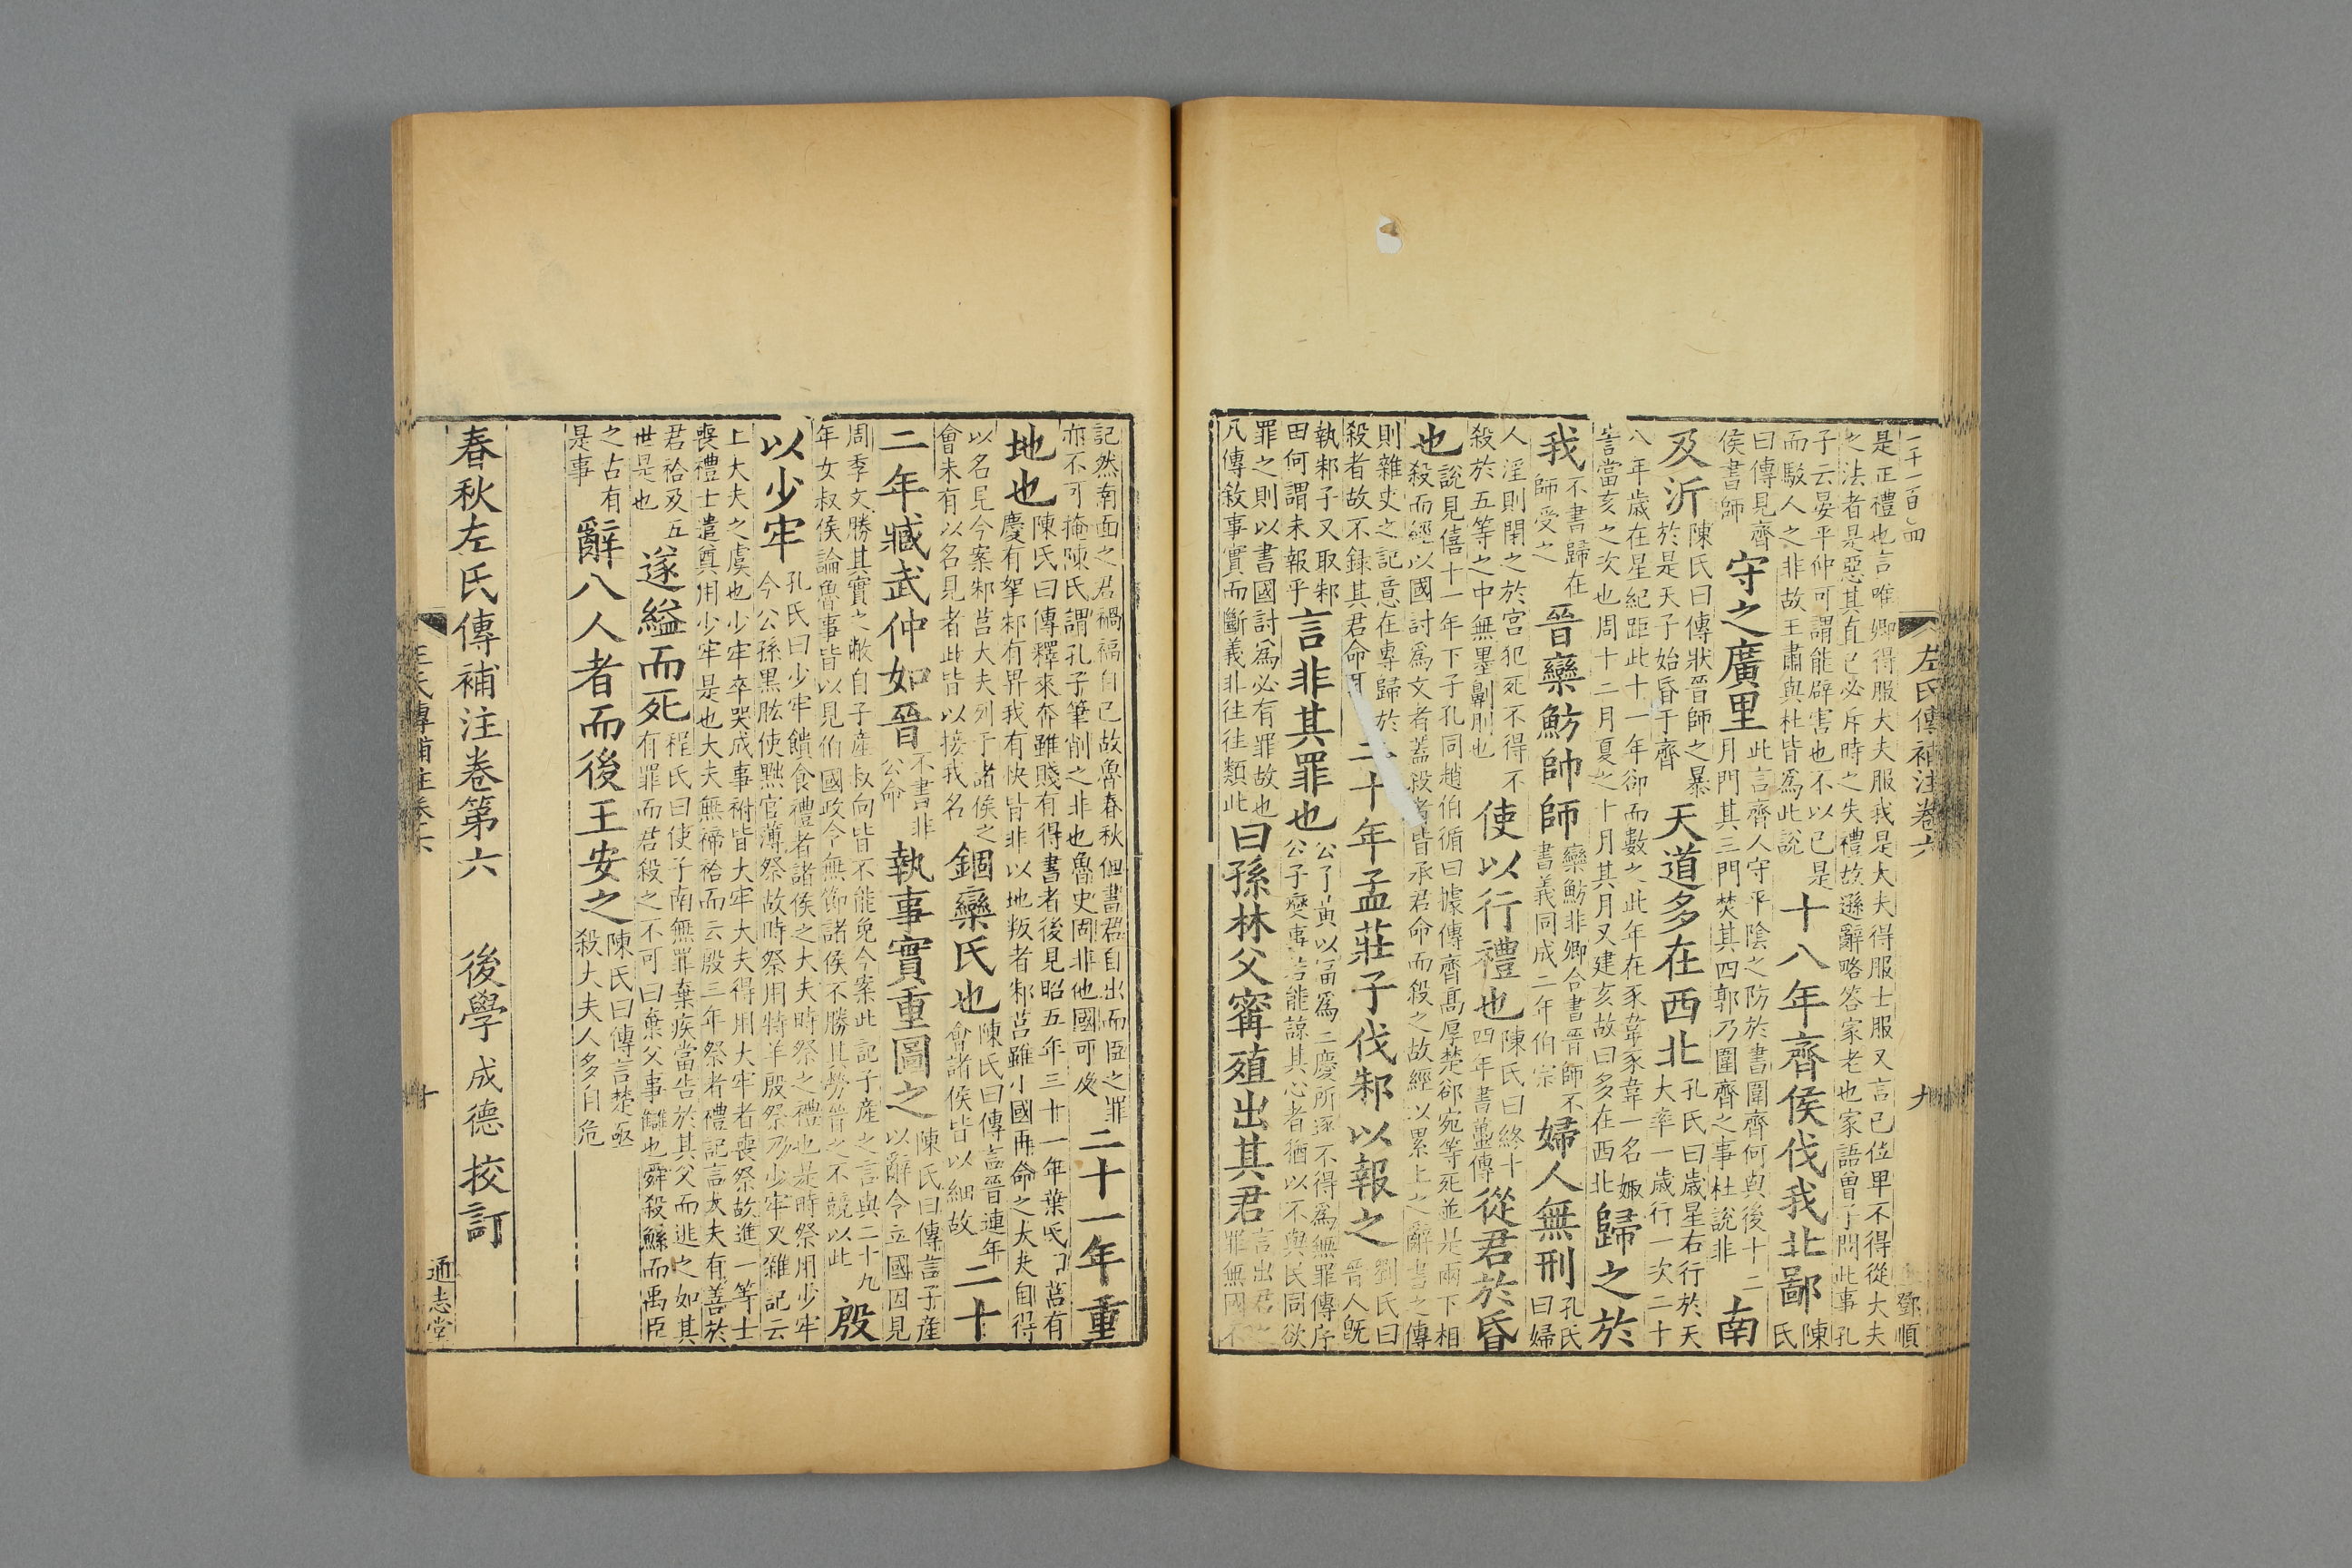 左氏傳補注卷六
九
鄧順
是正禮也言唯卿得服大夫服我是大夫得服士服又言已位卑不得從大夫
之法者是惡其直已必斥時之失禮故遜辭略答家老也家語曾子問此事孔
子云晏平仲可謂能辟害也不以已是
而駮人之非故王肅與杜皆爲此說
十八年齊侯伐我北鄙
陳氏
曰傳見齊
侯書師
守之廣里
此言齊人守平陰之防於書圍齊何與後十二
月門其三門焚其四郭乃圍齊之事杜說非
南
及沂
陳氏曰傳狀晉師之暴
於是天子始昏于齊
天道多在西北
孔氏曰歲星右行於天
大率一歲行一次二十
八年歲在星紀距此十一年卻而數之此年在豕韋豕韋一名娵
訾當亥之次也周十二月夏之十月其月又建亥故曰多在西北
歸之於
我
不書歸在
師受之
晉欒魴帥師
欒魴非卿合書晉師不
書義同成二年伯宗
婦人無刑
孔氏
曰婦
人淫則閉之於宮犯死不得不
殺於五等之中無墨劓刖也
使以行禮也
陳氏曰終十
四年書蠆傳
從君於昏
也
說見僖十一年下子孔同趙伯循曰據傳齊高厚楚郤宛等死並是兩下相
殺而經以國討爲文者蓋殺者皆承君命而殺之故經以累上之辭書之傳
則雜史之記意在專歸於
殺者故不録其君命耳
二十年孟莊子伐邾以報之
劉氏曰
晉人旣
執邾子又取邾
田何謂未報乎
言非其罪也
公子黃以冨爲二慶所逐不得爲無罪傳序
公子燮事若能諒其心者猶以不與民同欲
罪之則以書國討爲必有罪故也
凡傳敘事實而斷義非往往類此
曰孫林父甯殖出其君
言出君之
罪無國不
記然南面之君禍福自已故魯春秋但書君自出而臣之罪
亦不可掩陳氏謂孔子筆削之非也魯史固非他國可及
二十一年重
地也
陳氏曰傳釋來奔雖賤有得書者後見昭五年三十一年葉氏曰莒有
慶有挐邾有畀我有快皆非以地叛者邾莒雖小國再命之大夫自得
以名見今案邾莒大夫列于諸侯之
會未有以名見者此皆以接我名
錮欒氏也
陳氏曰傳言晉連年
會諸侯皆以細故
二十
二年臧武仲如晉
不書非
公命
執事實重圖之
陳氏曰傳言子產
以辭令立國因見
周季文勝其實之敝自子產叔向皆不能免今案此記子產之言與二十九
年女叔侯論魯事皆以見伯國政令無節諸侯不勝其勞晉之不競以此
殷
以少牢
孔氏曰少牢饋食禮者諸侯之大夫時祭之禮也是時祭用少牢
今公孫黑肱使黜官薄祭故時祭用特羊殷祭乃少牢又雜記云
上大夫之虞也少牢卒哭成事祔皆大牢大夫得用大牢者喪祭故進一等士
喪禮士遣奠用少牢是也大夫無禘祫而云殷三年祭者禮記言大夫有善於
君祫及五
世是也
遂縊而死
程氏曰使子南無罪棄疾當告於其父而逃之如其
有罪而君殺之不可曰棄父事讎也舜殺鯀而禹臣
之占有
是事
辭八人者而後王安之
陳氏曰傳言楚亟
殺大夫人多自危
春秋左氏傳補注卷第六
後學 成德 挍訂
左氏傳補注卷六
十
通志堂